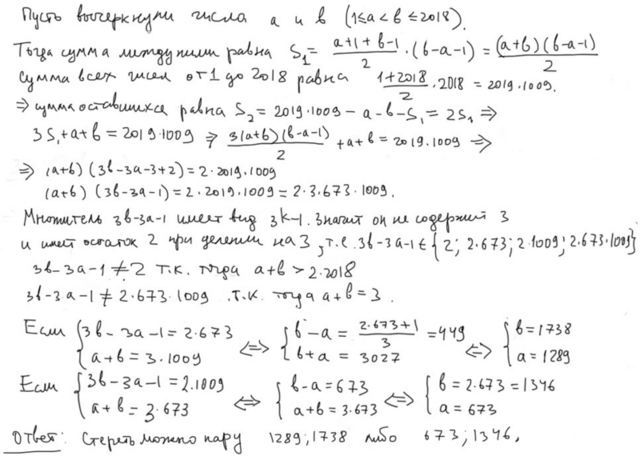 Пусть вычеркнули числа a и b (1≤a<b≤2018).
Тогда сумма между ними равна S₁ = (a+1+b-1)/2 · (b-a-1) = (a+b)(b-a-1)/2
Сумма всех чисел от 1 до 2018 равна (1+2018)/2 · 2018 = 2019·1009.
⇒ сумма оставшихся равна S₂ = 2019·1009 - a - b - S₁ = 2S₁ ⇒
3S₁ + a + b = 2019·1009 ⇒ 3(a+b)(b-a-1)/2 + a + b = 2019·1009 ⇒
⇒ (a+b)(3b-3a-3+2) = 2·2019·1009
(a+b)(3b-3a-1) = 2·2019·1009 = 2·3·673·1009.
Множитель 3b-3a-1 имеет вид 3k-1. Значит он не содержит 3
и имеет остаток 2 при делении на 3, т.е. 3b-3a-1 ∈ {2; 2·673; 2·1009; 2·673·1009}
3b-3a-1 ≠ 2 т.к. тогда a+b > 2·2018
3b-3a-1 ≠ 2·673·1009 т.к. тогда a+b = 3.
Если { 3b-3a-1 = 2·673; a+b = 3·1009 ⇔ { b-a = (2·673+1)/3 = 449; b+a = 3027 ⇔ { b = 1738; a = 1289
Если { 3b-3a-1 = 2·1009; a+b = 3·673 ⇔ { b-a = 673; a+b = 3·673 ⇔ { b = 2·673 = 1346; a = 673
Ответ: Стереть можно пару 1289; 1738 либо 673; 1346.